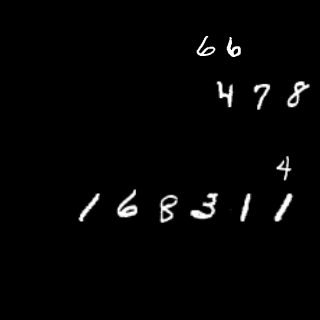 66
478
4
168311